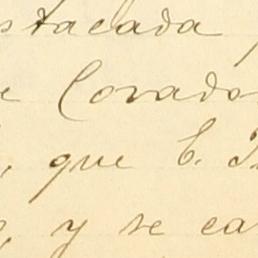 stacada
Covado
, que b.
, y se ca